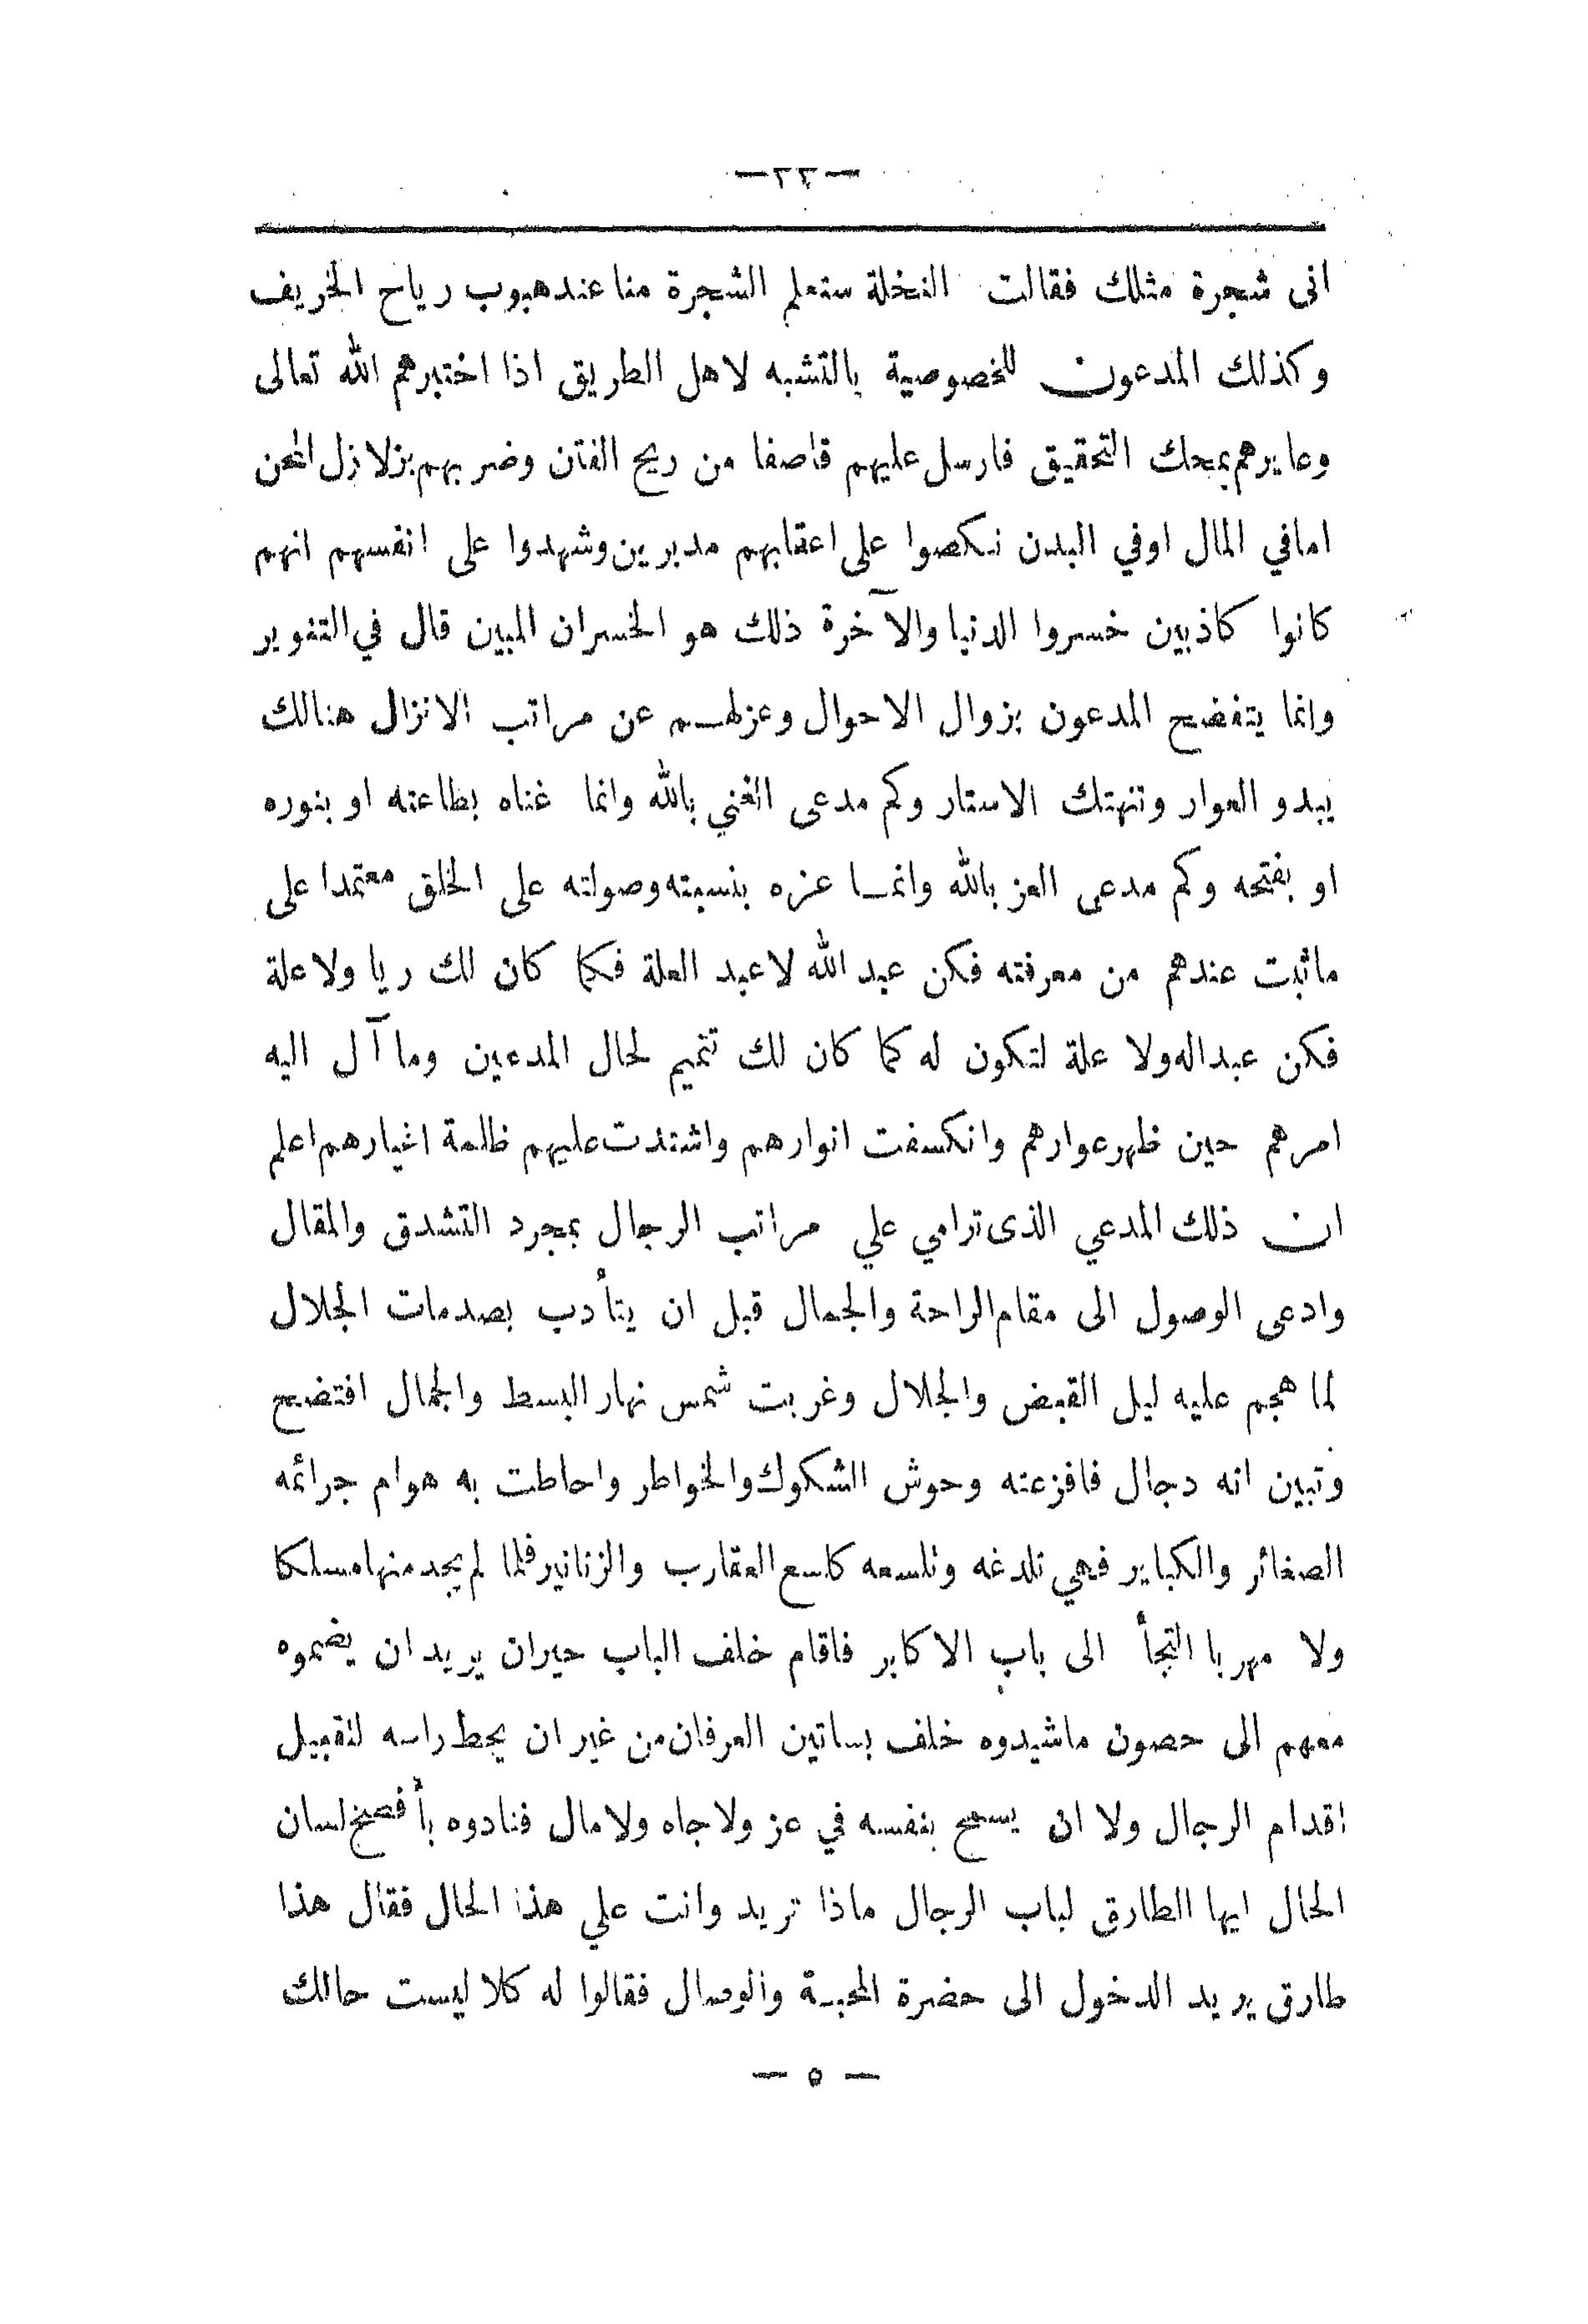 —٣٣—
انى شجرة مثلك فقالت النخلة ستعلم الشجرة منا عند هبوب رياح الخريف
وكذلك المدعون للخصوصية بالتشبه لاهل الطريق اذا اختبرهم الله تعالى
وعايرهم بمحك التحقيق فارسل عليهم قاصفا من ريح الفتن وضربهم بزلازل المحن
امافي المال اوفي البدن نكصوا على اعقابهم مدبرين وشهدوا على انفسهم انهم
كانوا كاذبين خسروا الدنيا والآخرة ذلك هو الخسران المبين قال في التنوير
وانما يتفضح المدعون بزوال الاحوال وعزلهم عن مراتب الانزال هنالك
يبدو العوار وتنهتك الاستار وكم مدعى الغني بالله وانما غناه بطاعته او بنوره
او بفتحه وكم مدعى العز بالله وانما عزه بنسبته وصولته على الخلق معتمدا على
ماثبت عندهم من معرفته فكن عبد الله لاعبد العلة فكما كان لك ربا ولاعلة
فكن عبداله ولا علة لتكون له كما كان لك تتميم لحال المدعين وما آل اليه
امرهم حين ظهرعوارهم وانكسفت انوارهم واشتدت عليهم ظلمة اغيارهم اعلم
ان ذلك المدعي الذى ترامي علي مراتب الرجال بمجرد التشدق والمقال
وادعى الوصول الى مقام الراحة والجمال قبل ان يتأدب بصدمات الجلال
لما هجم عليه ليل القبض والجلال وغربت شمس نهار البسط والجمال افتضح
وتبين انه دجال فافزعته وحوش الشكوك والخواطر واحاطت به هوام جرائمه
الصغائر والكباير فهي تلدغه وتلسعه كلسع العقارب والزنانير فلما لم يجد منها مسلكا
ولا مهربا التجأ الى باب الاكابر فاقام خلف الباب حيران يريد ان يضموه
معهم الى حصون ماشيدوه خلف بساتين العرفان من غير ان يحط راسه لتقبيل
اقدام الرجال ولا ان يسمح بنفسه في عز ولاجاه ولامال فنادوه بأفصح لسان
الحال ايها الطارق لباب الرجال ماذا تريد وانت علي هذا الحال فقال هذا
طارق يريد الدخول الى حضرة المحبة والوصال فقالوا له كلا ليست حالك
— ٥ —